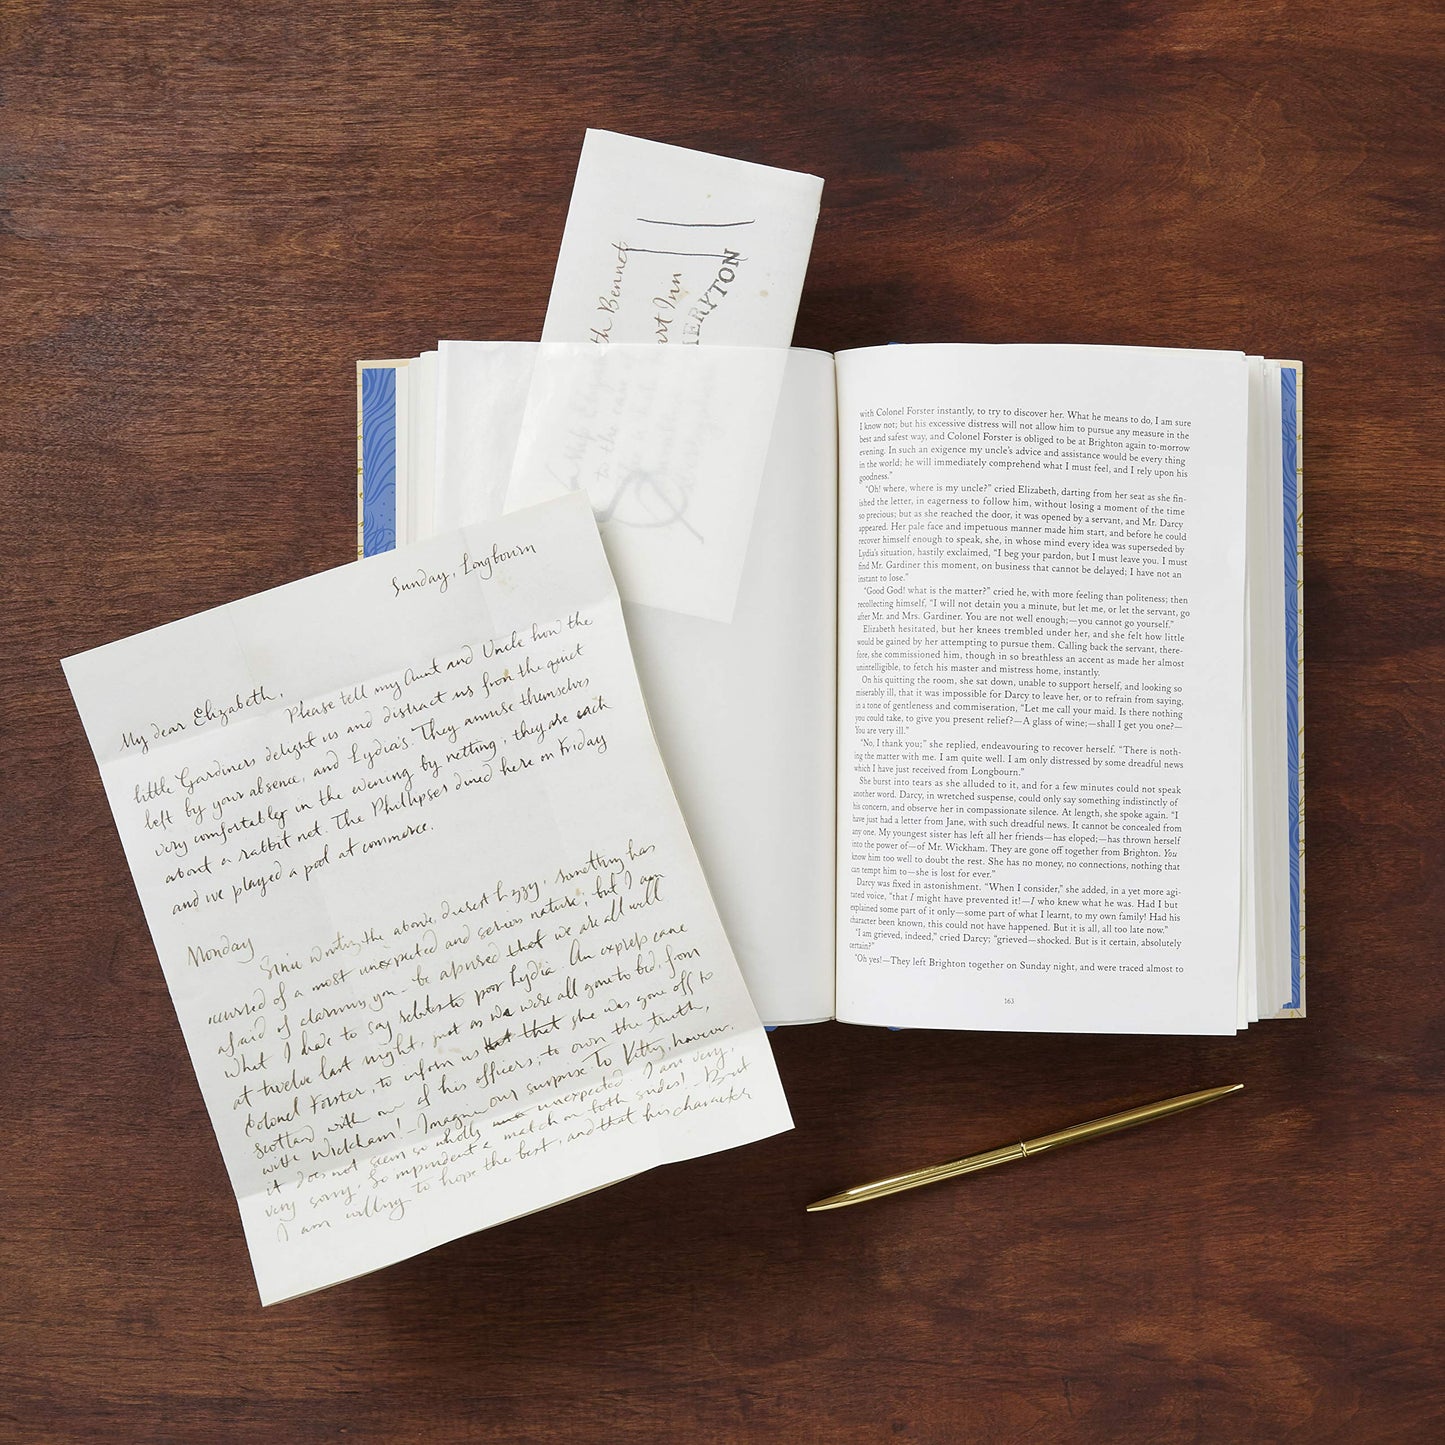 Sunday, Longbourn
My dear Elizabeth,
Please tell my Aunt and Uncle how the
little Gardiners delight us and distract us from the quiet
left by your absence, and Lydia's. They amuse themselves
very comfortably in the evening by netting; they are each
about a rabbit net. The Phillipses dined here on Friday
and we played a pool at commerce.
Monday
Since writing the above, dearest Lizzy, something has
occurred of a most unexpected and serious nature; but I am
afraid of alarming you - be assured that we are all well
What I have to say relates to poor Lydia. An express came
at twelve last night, just as we were all gone to bed, from
Colonel Forster, to inform us that she was gone off to
Scotland with one of his officers; to own the truth,
with Wickham! - Imagine our surprise. To Kitty, however,
it does not seem so wholly unexpected. I am very,
very sorry. So imprudent a match on both sides! - But
I am willing to hope the best, and that his character
th Bennet
art Inn
MERYTON
with Colonel Forster instantly, to try to discover her. What he means to do, I am sure
I know not; but his excessive distress will not allow him to pursue any measure in the
best and safest way, and Colonel Forster is obliged to be at Brighton again to-morrow
evening. In such an exigence my uncle's advice and assistance would be every thing
in the world; he will immediately comprehend what I must feel, and I rely upon his
goodness."
"Oh! where, where is my uncle?" cried Elizabeth, darting from her seat as she fin-
ished the letter, in eagerness to follow him, without losing a moment of the time
so precious; but as she reached the door, it was opened by a servant, and Mr. Darcy
appeared. Her pale face and impetuous manner made him start, and before he could
recover himself enough to speak, she, in whose mind every idea was superseded by
Lydia's situation, hastily exclaimed, "I beg your pardon, but I must leave you. I must
find Mr. Gardiner this moment, on business that cannot be delayed; I have not an
instant to lose."
"Good God! what is the matter?" cried he, with more feeling than politeness; then
recollecting himself, "I will not detain you a minute, but let me, or let the servant, go
after Mr. and Mrs. Gardiner. You are not well enough;—you cannot go yourself."
Elizabeth hesitated, but her knees trembled under her, and she felt how little
would be gained by her attempting to pursue them. Calling back the servant, there-
fore, she commissioned him, though in so breathless an accent as made her almost
unintelligible, to fetch his master and mistress home, instantly.
On his quitting the room, she sat down, unable to support herself, and looking so
miserably ill, that it was impossible for Darcy to leave her, or to refrain from saying,
in a tone of gentleness and commiseration, "Let me call your maid. Is there nothing
you could take, to give you present relief?—A glass of wine;—shall I get you one?—
You are very ill."
"No, I thank you;" she replied, endeavouring to recover herself. "There is noth-
ing the matter with me. I am quite well. I am only distressed by some dreadful news
which I have just received from Longbourn."
She burst into tears as she alluded to it, and for a few minutes could not speak
another word. Darcy, in wretched suspense, could only say something indistinctly of
his concern, and observe her in compassionate silence. At length, she spoke again. "I
have just had a letter from Jane, with such dreadful news. It cannot be concealed from
any one. My youngest sister has left all her friends—has eloped;—has thrown herself
into the power of—of Mr. Wickham. They are gone off together from Brighton. You
know him too well to doubt the rest. She has no money, no connections, nothing that
can tempt him to—she is lost for ever."
Darcy was fixed in astonishment. "When I consider," she added, in a yet more agi-
tated voice, "that I might have prevented it!—I who knew what he was. Had I but
explained some part of it only—some part of what I learnt, to my own family! Had his
character been known, this could not have happened. But it is all, all too late now."
"I am grieved, indeed," cried Darcy; "grieved—shocked. But is it certain, absolutely
certain?"
"Oh yes!—They left Brighton together on Sunday night, and were traced almost to
163